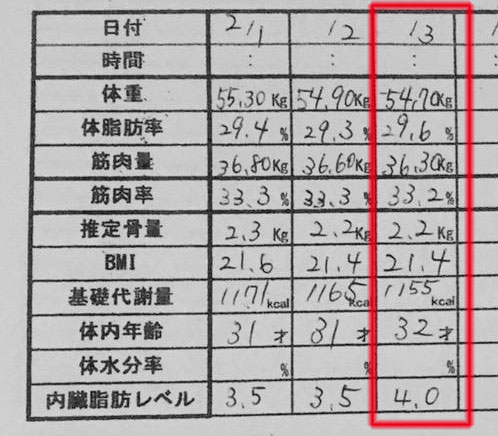 日付 2/1 /2 /3
時間 : : :
体重 55.30Kg 54.90Kg 54.70Kg
体脂肪率 29.4% 29.3% 29.6%
筋肉量 36.80Kg 36.60Kg 36.30Kg
筋肉率 33.3% 33.3% 33.2%
推定骨量 2.3Kg 2.2Kg 2.2Kg
BMI 21.6 21.4 21.4
基礎代謝量 1171kcal 1165kcal 1155kcal
体内年齢 31才 31才 32才
体水分率 % % %
内臓脂肪レベル 3.5 3.5 4.0